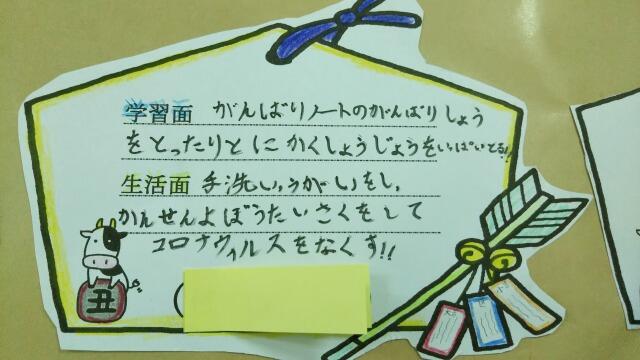 学習面 がんばりノートのがんばりしょう
をとったりとにかくしょうじょうをいっぱいとる!!
生活面 手洗い,うがいをし,
かんせんよぼうたいさくをして
コロナウィルスをなくす!!
丑